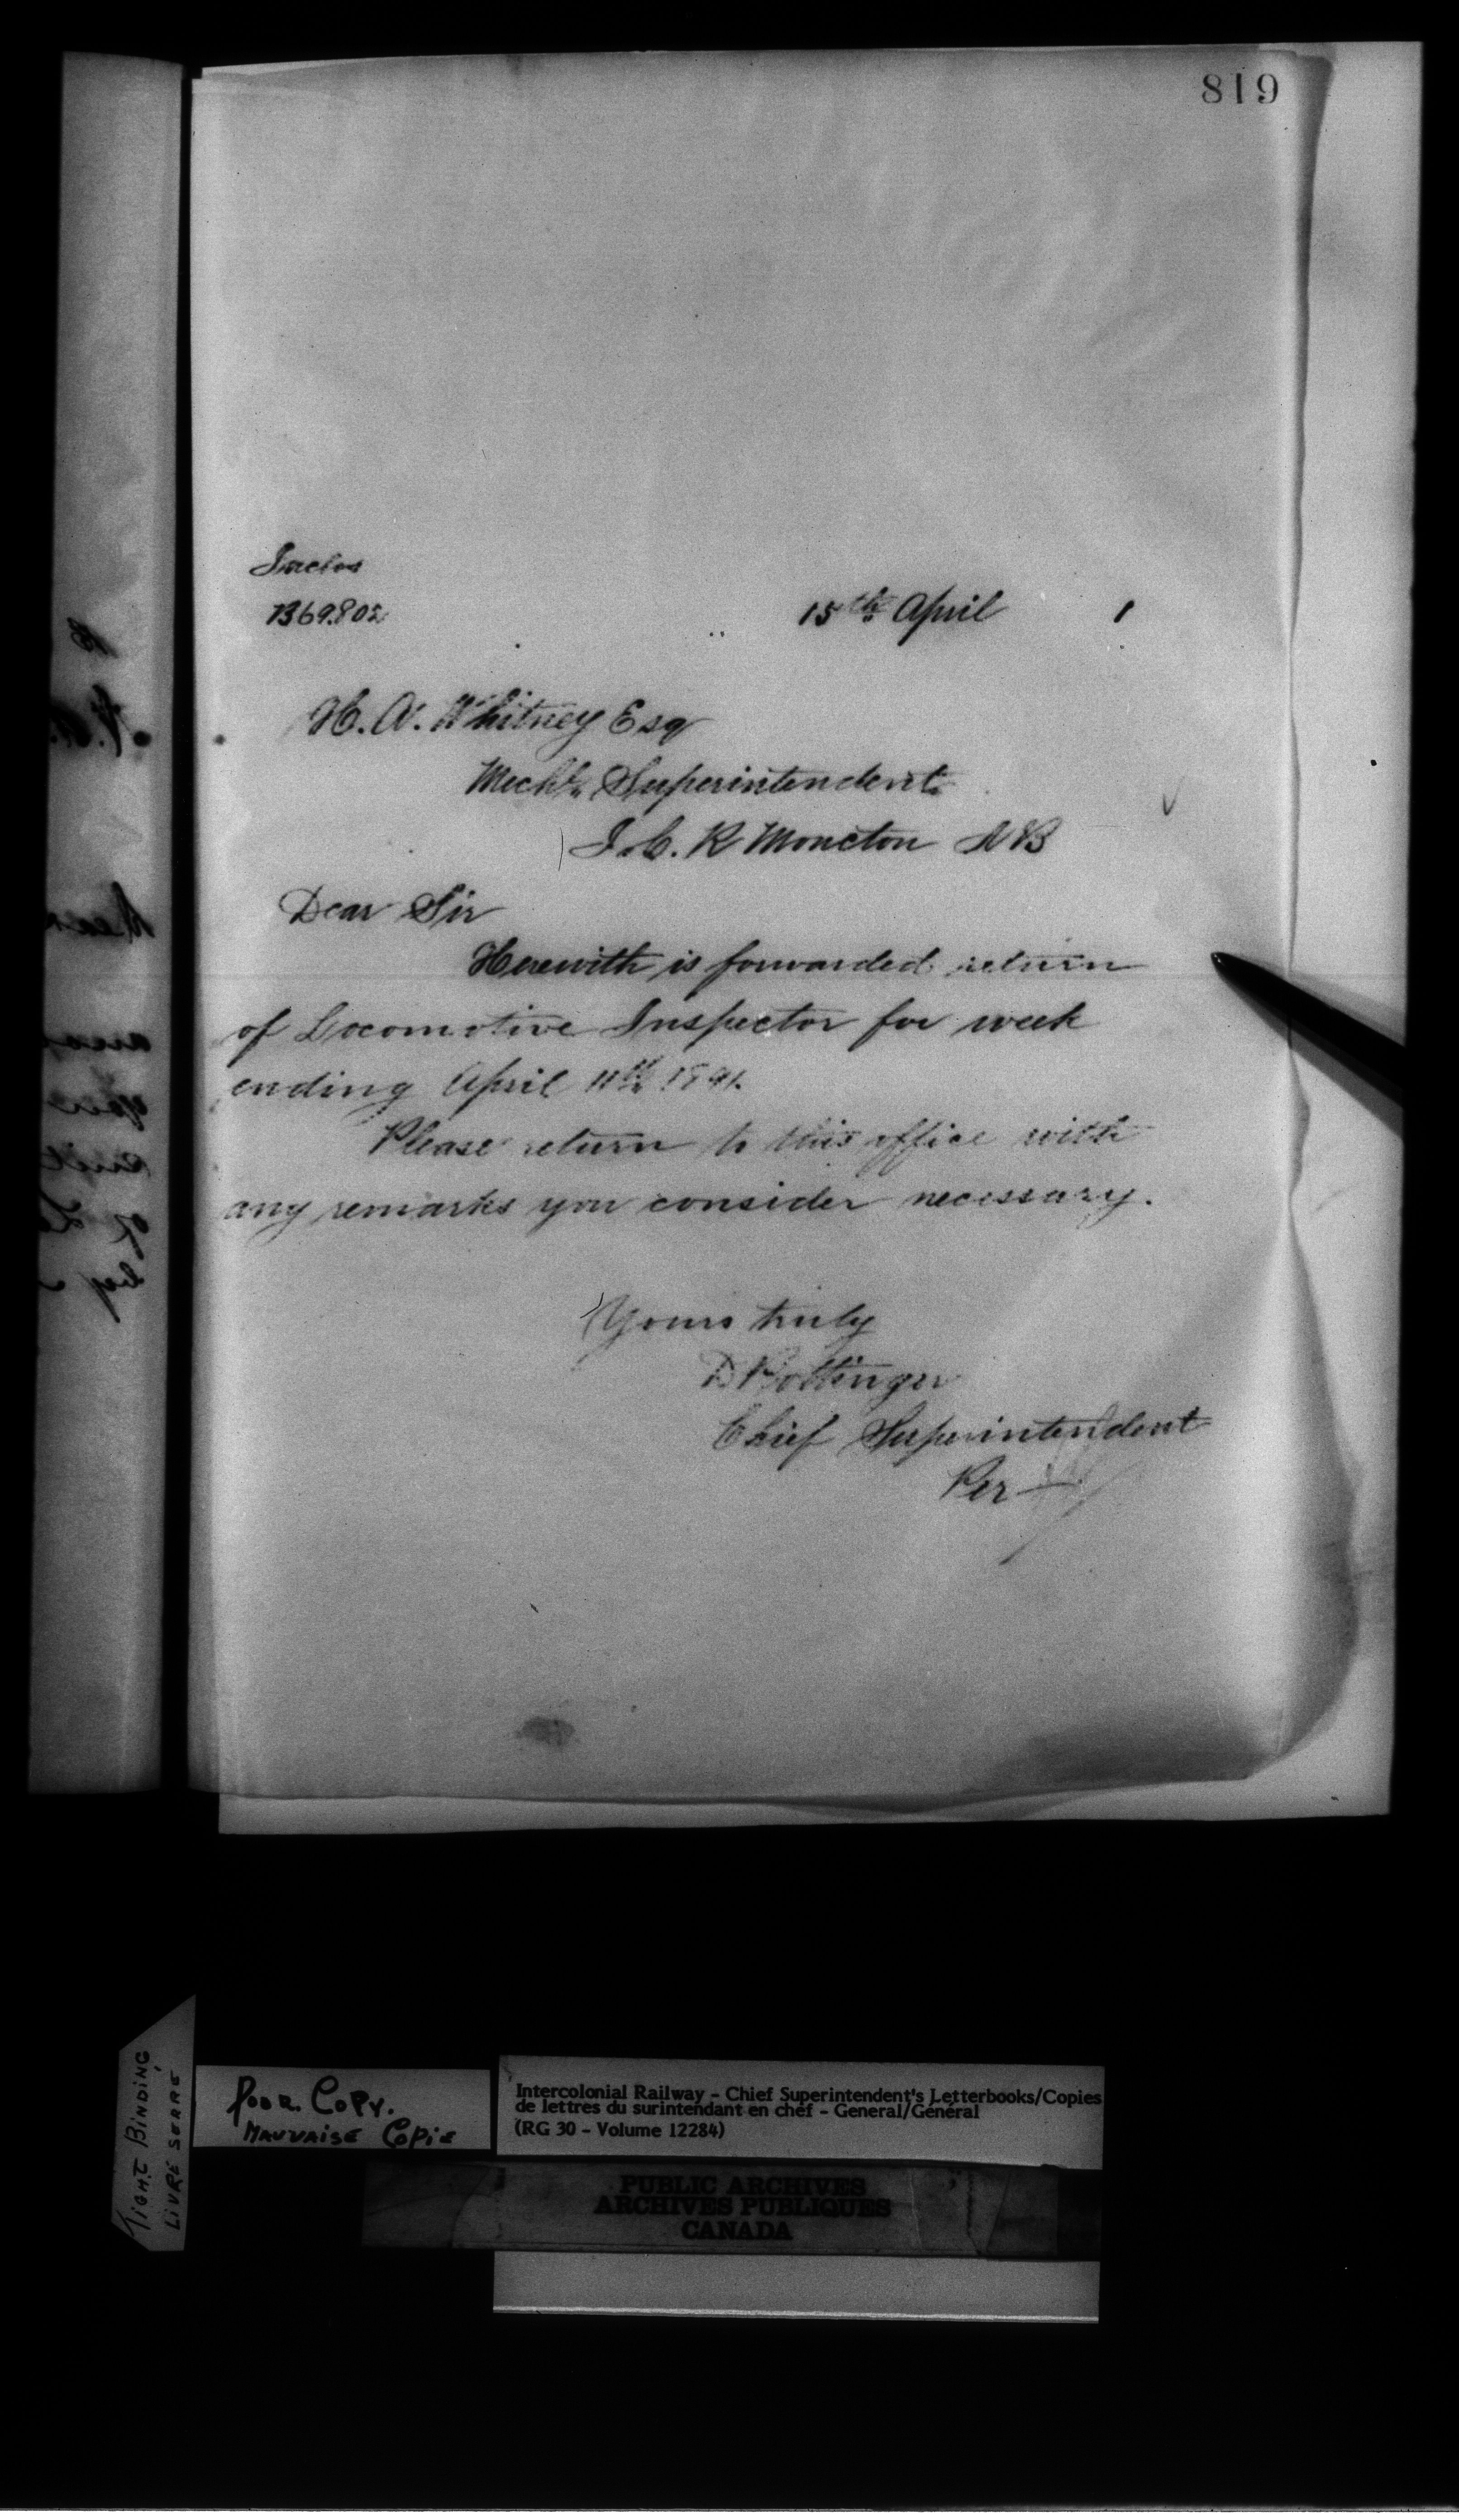 819
Inclos
15th April 1
H. A. Whitney Esq
Mechl. Superintendent.
I. C. R Moncton NB
Dear Sir
Herewith is forwarded return
of Locomotive Inspector for week
ending April 11th 1891.
Please return to this office with
any remarks you consider necessary.
Yours truly
D Pottinger
Chief Superintendent
Per
TIGHT BINDING
LIVRE SERRÉ
POOR COPY.
MAUVAISE COPIE
Intercolonial Railway - Chief Superintendent's Letterbooks/Copies
de lettres du surintendant en chef - General/Général
(RG 30 - Volume 12284)
PUBLIC ARCHIVES
ARCHIVES PUBLIQUES
CANADA